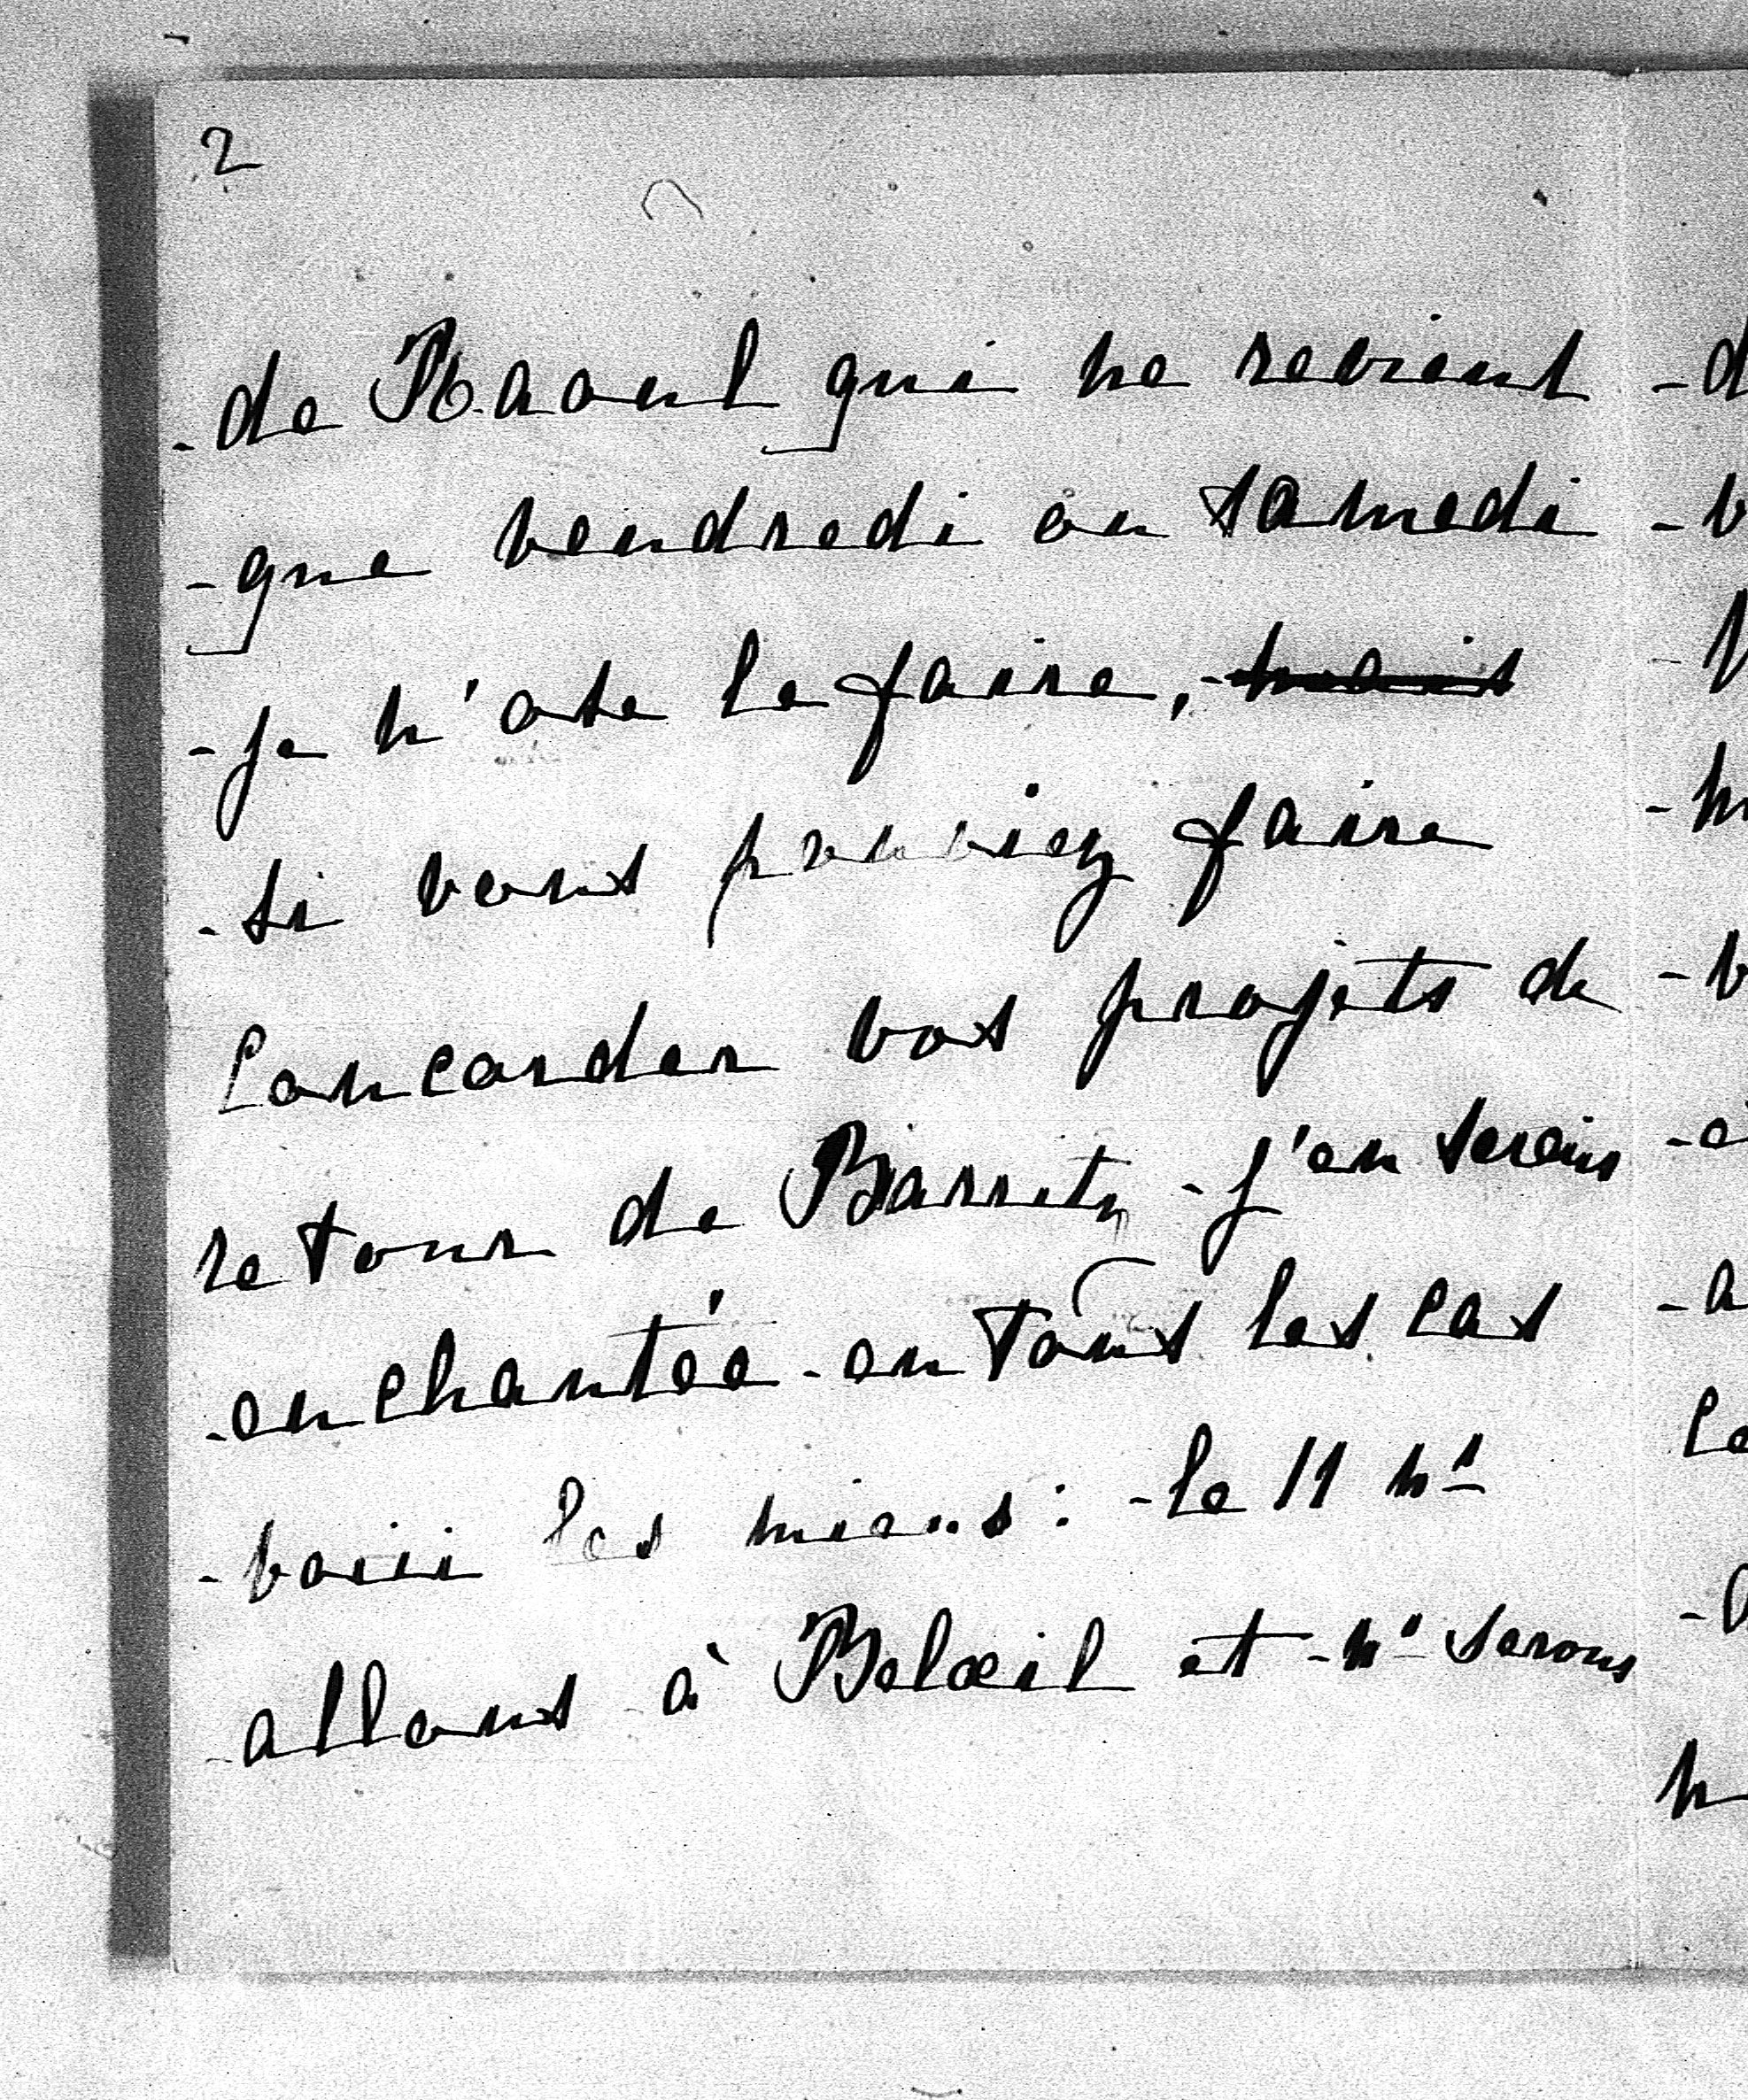 2
- de Raoul qui ne revient
- que vendredi ou samedi
- je n'ose le faire, - mais
- si vous pouviez faire
concorder vos projets de
retour de Biarritz - j'en serais
- enchantée - en tous les cas
- voici les miens : - le 11 ns
- allons à Belœil et - ns serons